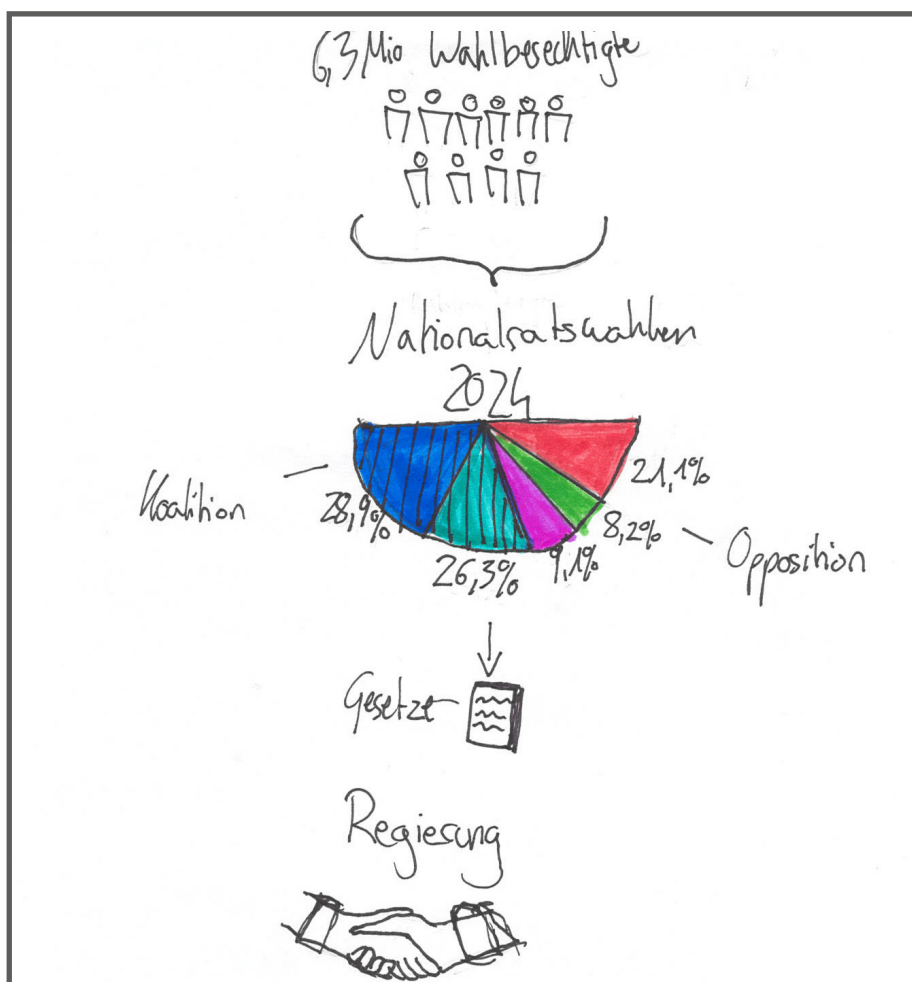 6,3 Mio Wahlberechtigte
Nationalratswahlen
2024
Koalition
28,9%
26,3%
9,1%
8,2%
21,1%
Opposition
Gesetze
Regierung